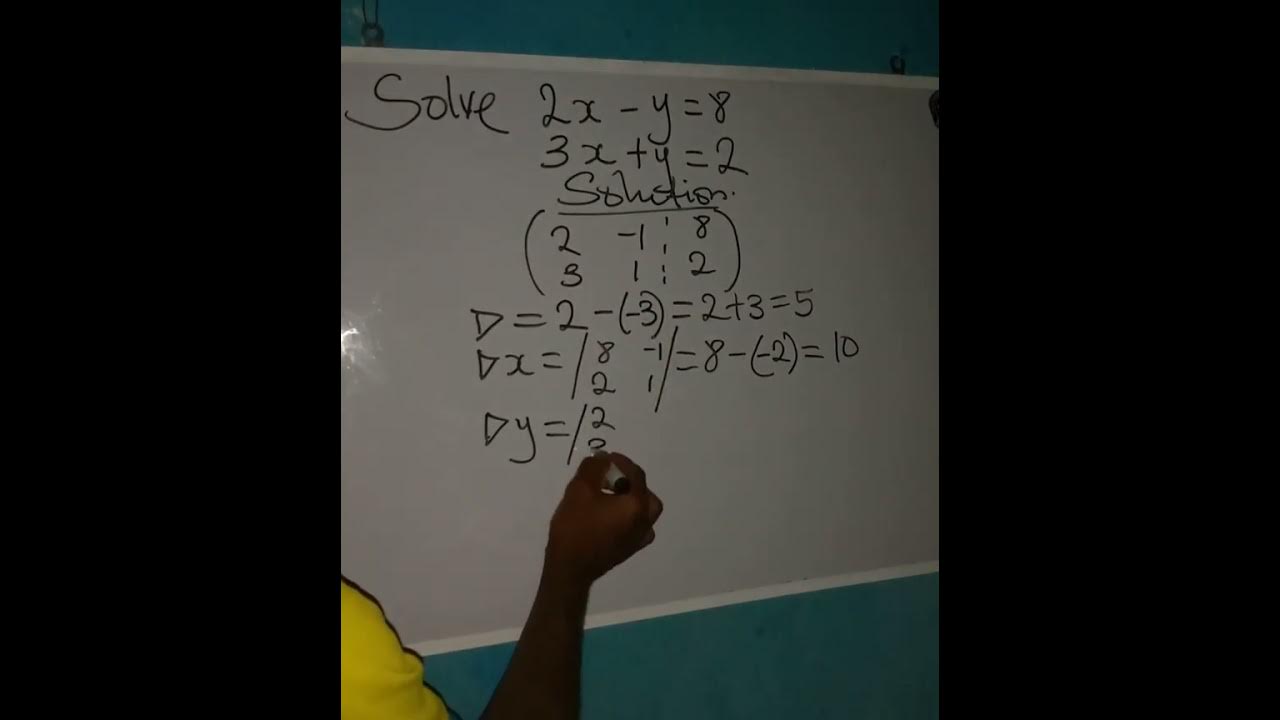 Solve 2x - y = 8
3x + y = 2
Solution.
( 2 -1 ¦ 8 )
( 3 1 ¦ 2 )
▷ = 2 - (-3) = 2 + 3 = 5
▷x = | 8 -1 | = 8 - (-2) = 10
2 1
▷y = | 2